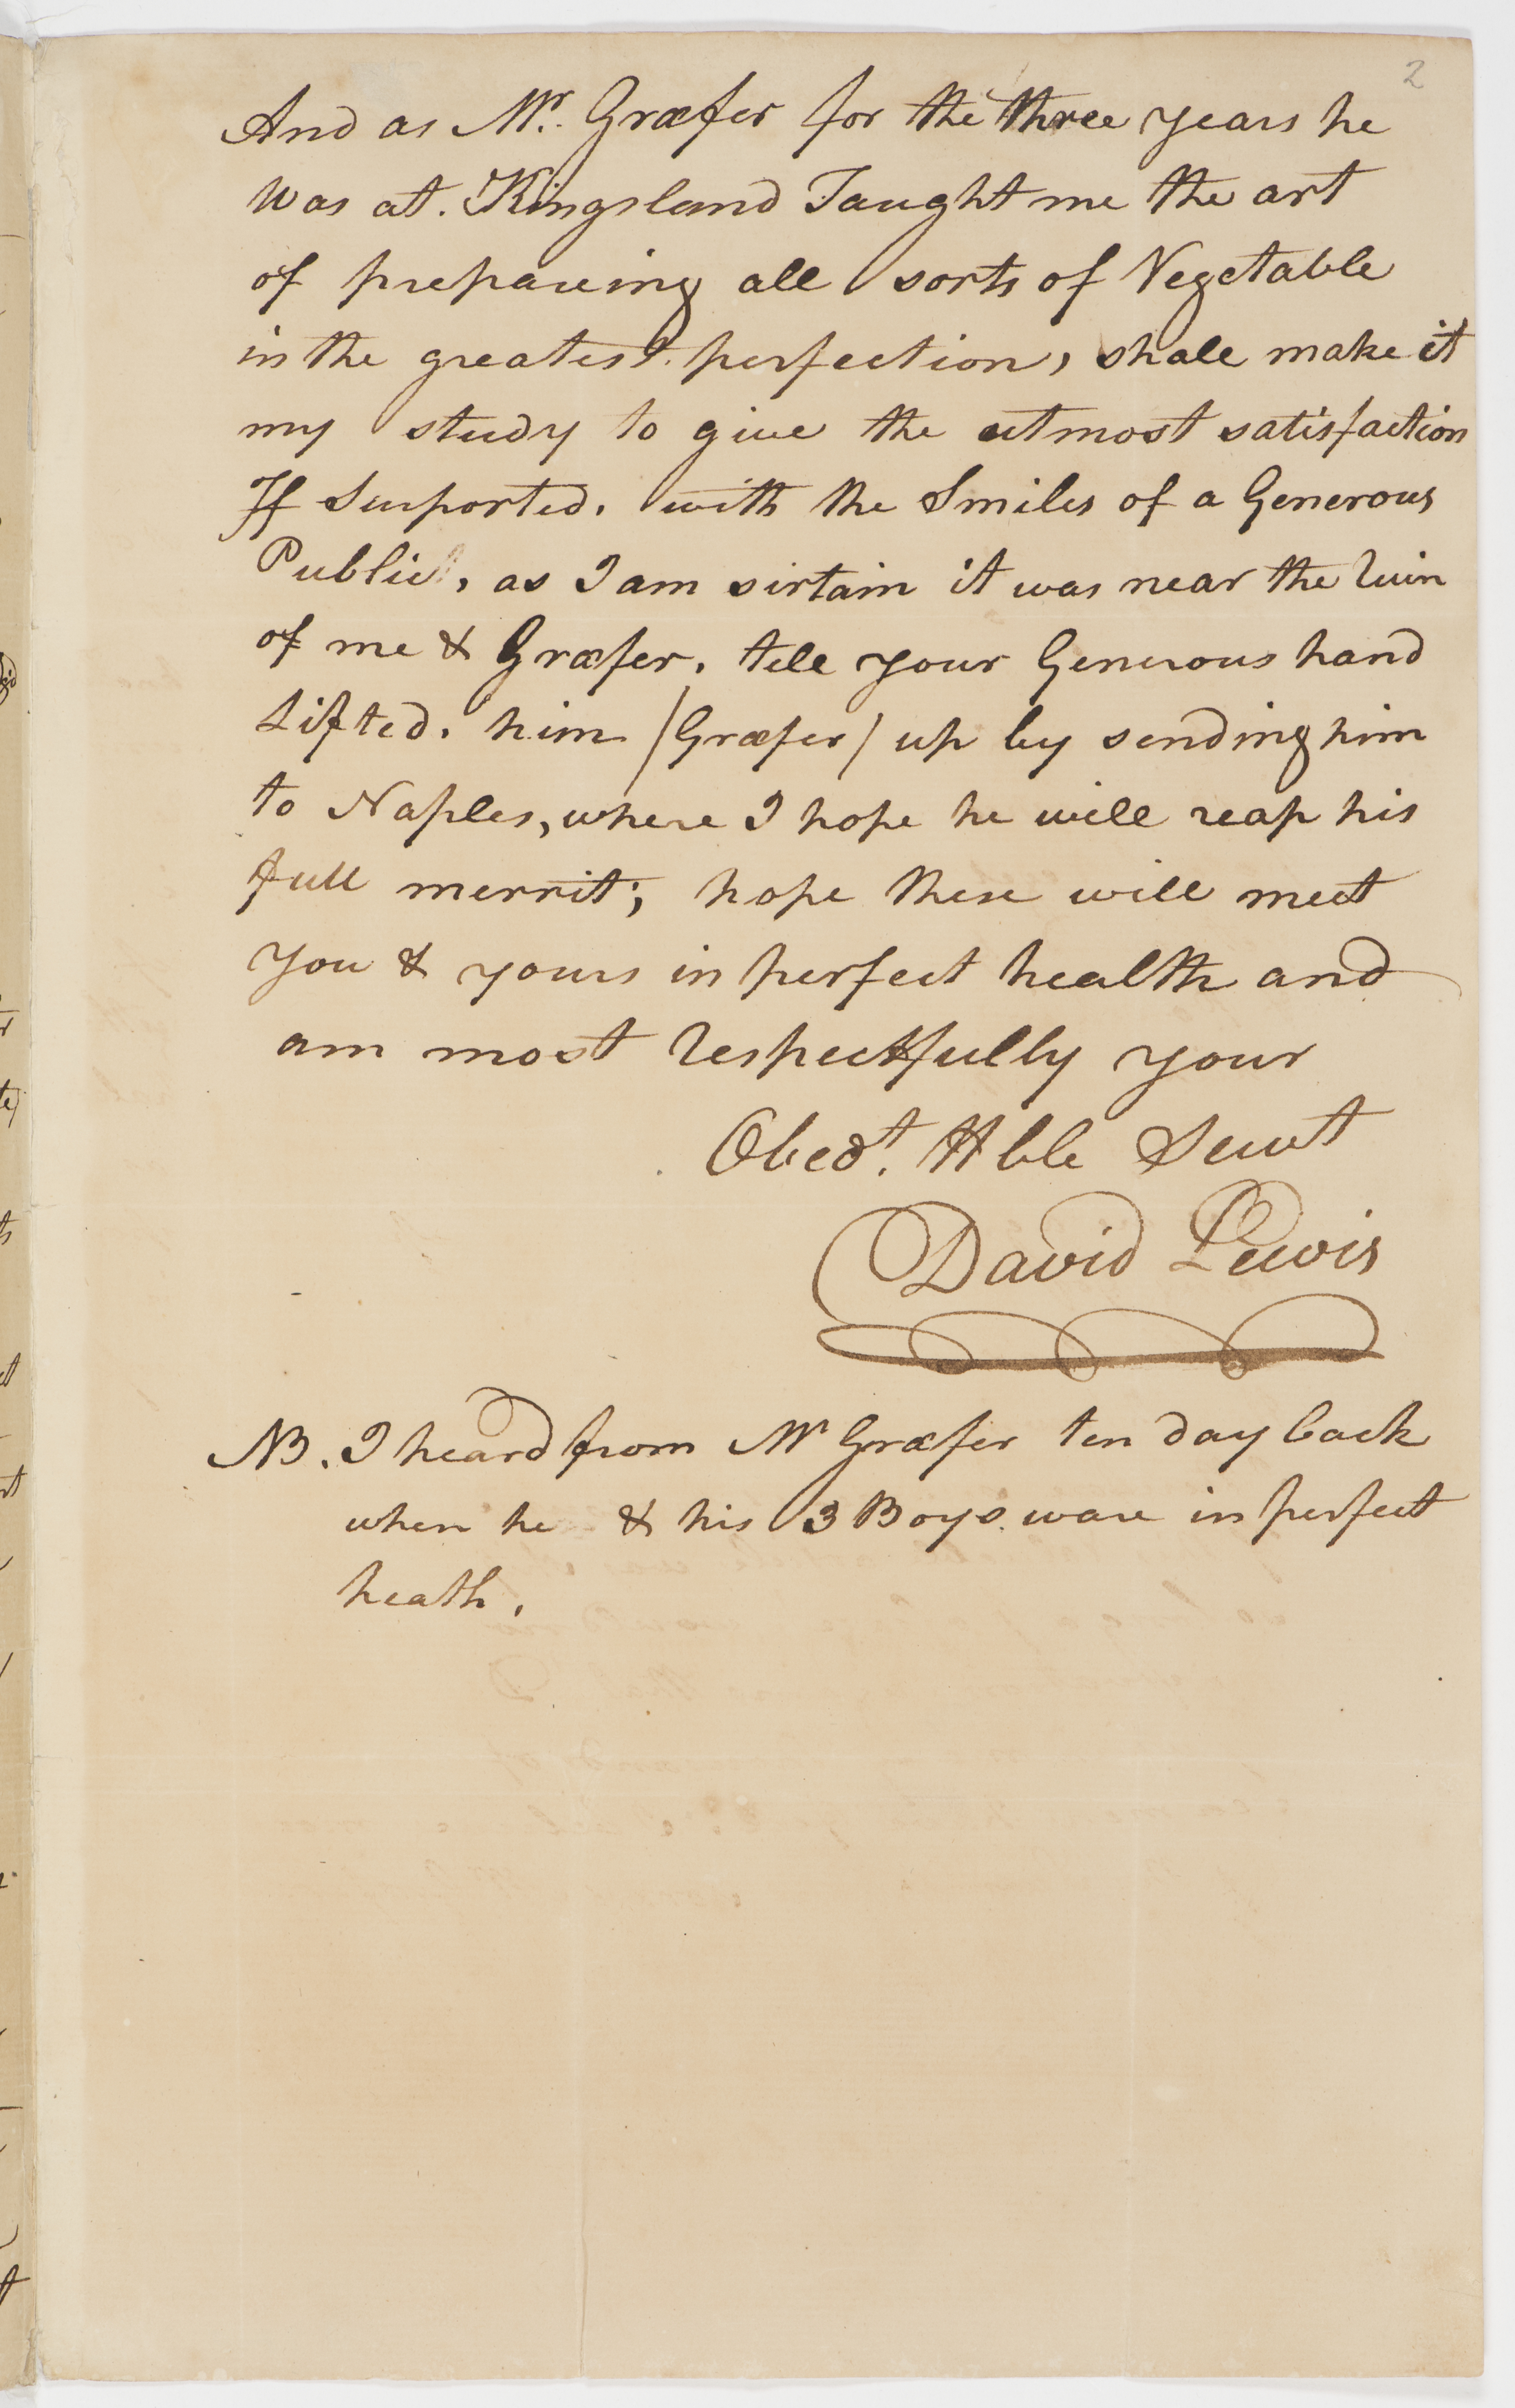 2
And as Mr. Græfer for the three years he
was at. Kingsland Taught me the art
of prepareing all sorts of Vegetable
in the greatest perfection, shall make it
my study to give the utmost satisfaction
If Suported. with the Smiles of a Generous
Public, as I am sirtain it was near the Ruin
of me & Græfer. tell your Generous hand
Lifted. him /Græfer/ up by sending him
to Naples, where I hope he will reap his
full merrit; hope these will meet
you & yours in perfect health and
am most respectfully your
Obedt. Hble Servt
David Lewis
NB. I heard from Mr Græfer ten day back
when he & his 3 Boys ware in perfect
heath.